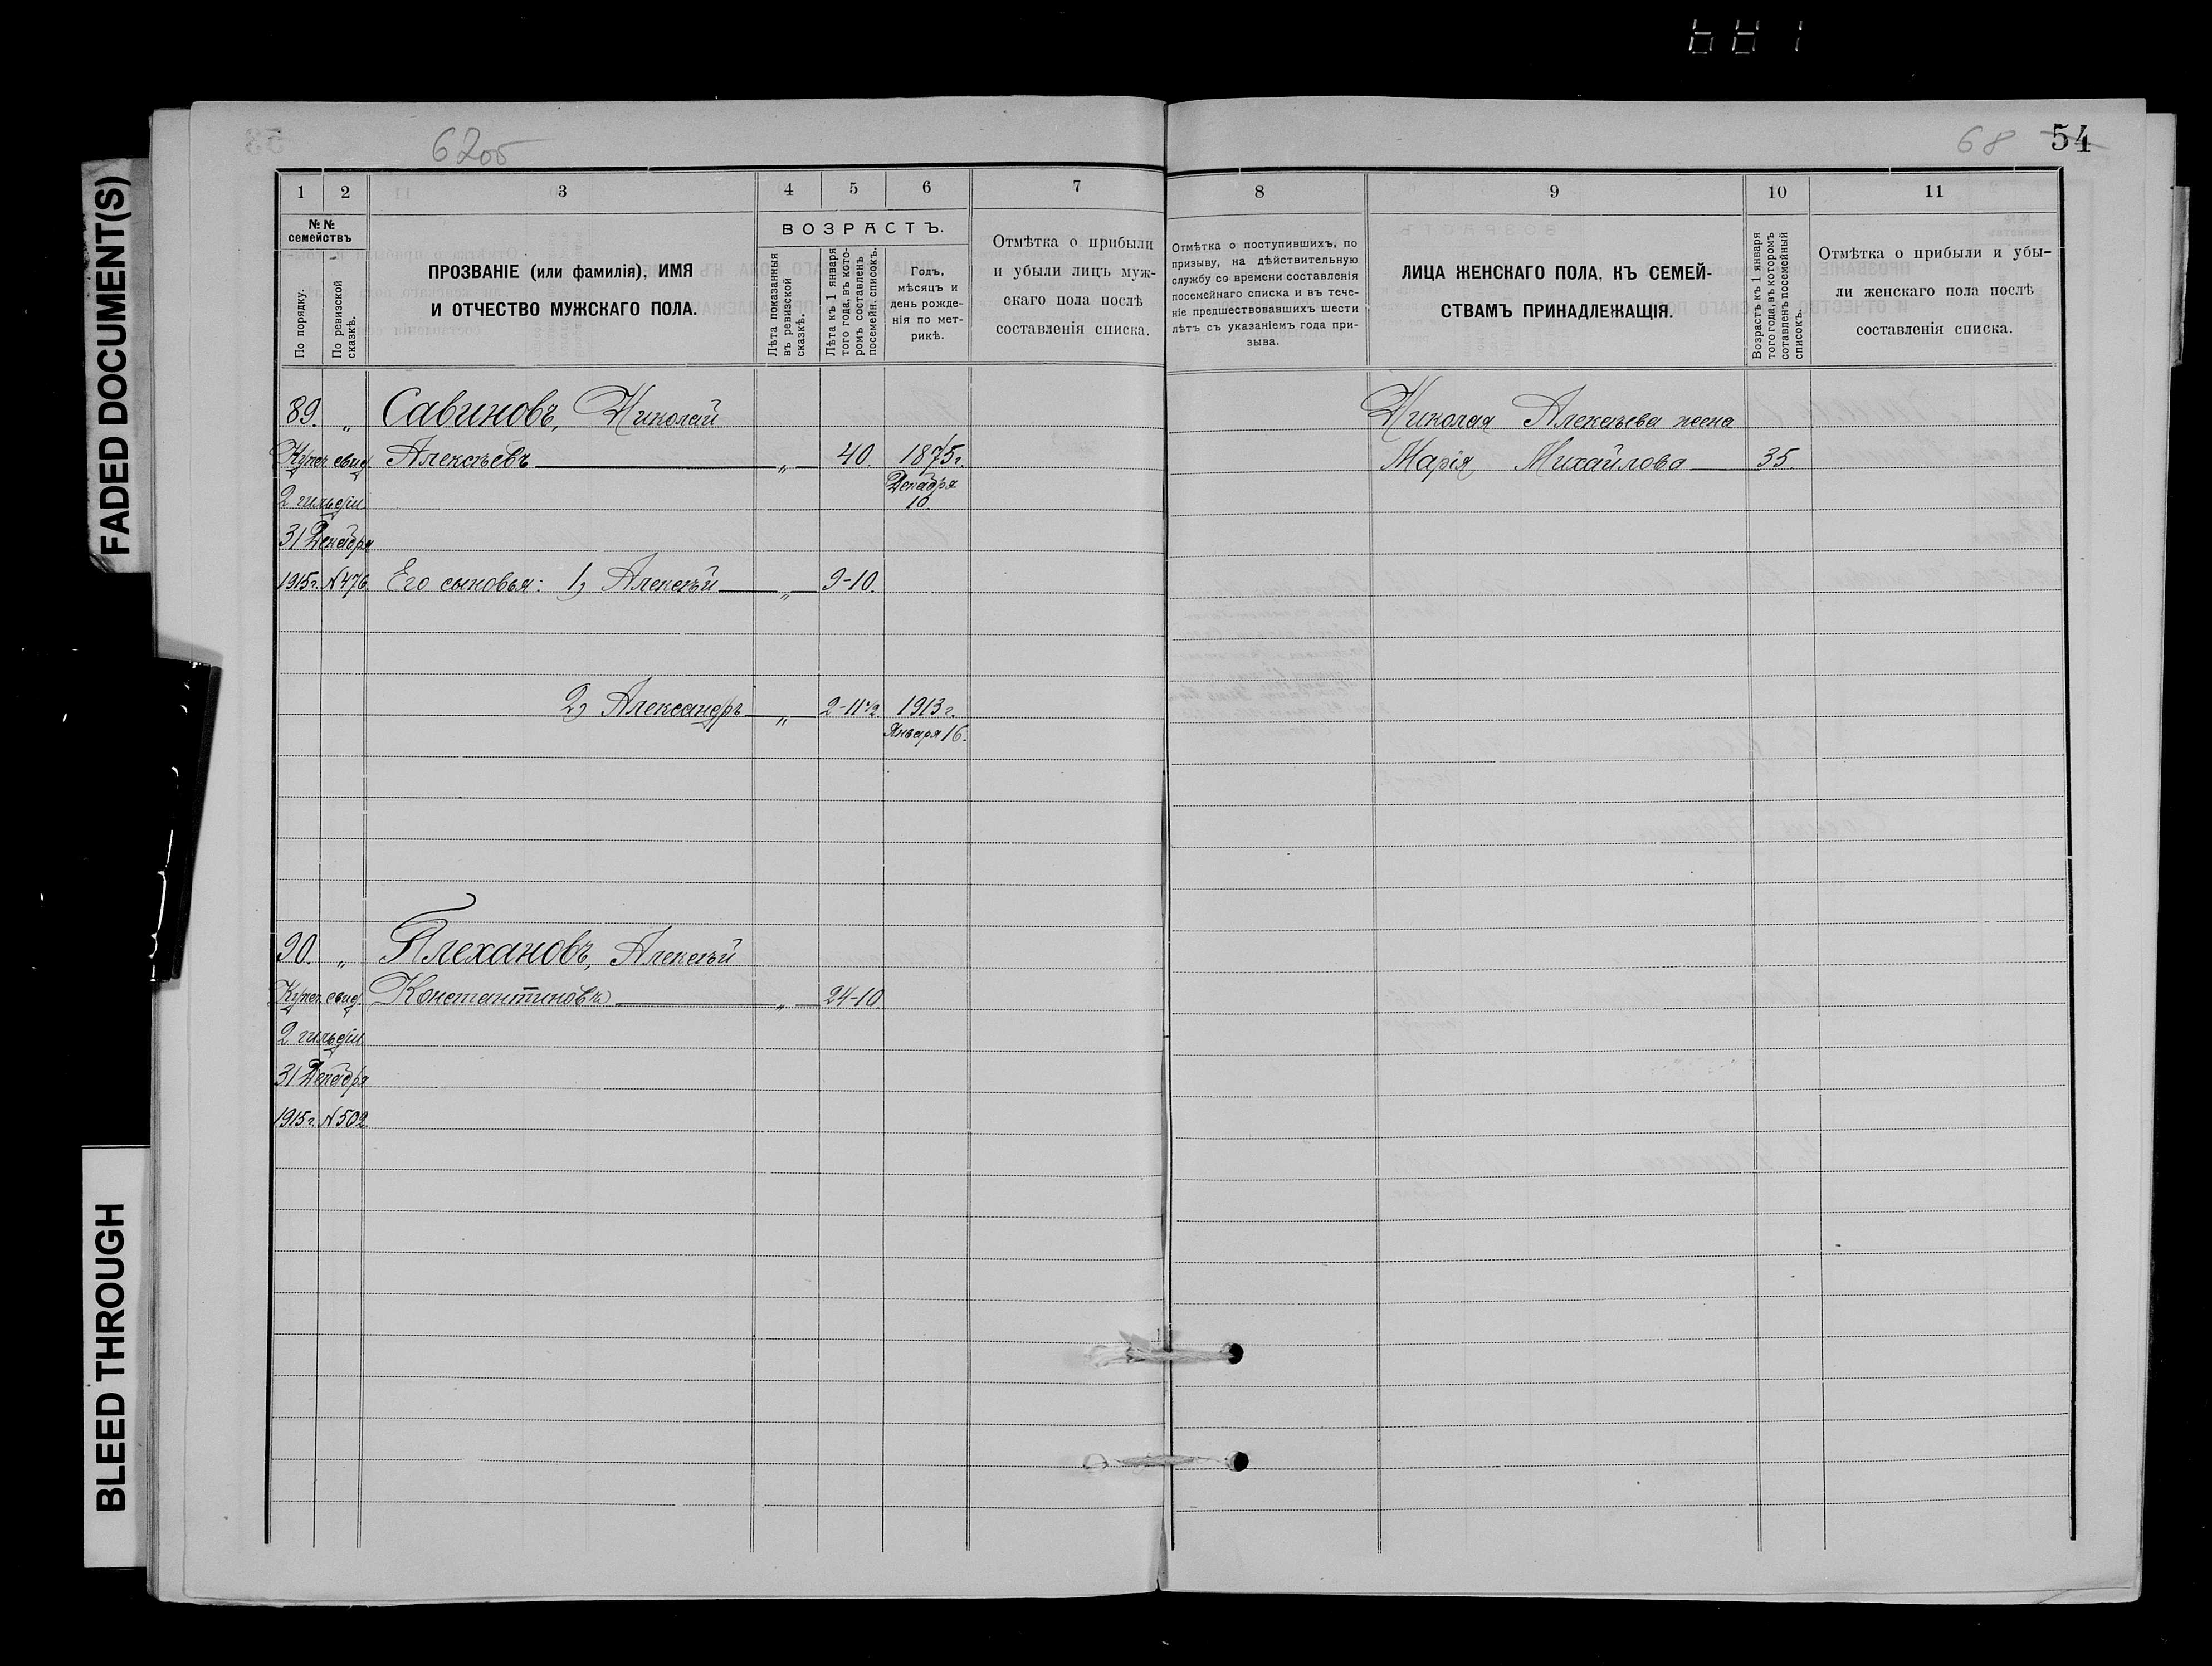 FADED DOCUMENT(S)
BLEED THROUGH
67об
68 54
1 2 3 4 5 6 7
№№ семействъ
По порядку.
По ревизской сказкѣ.
ПРОЗВАНІЕ (или фамилія), ИМЯ
И ОТЧЕСТВО МУЖСКАГО ПОЛА.
ВОЗРАСТЪ.
Лѣта показанныя въ ревизской сказкѣ.
Лѣта къ 1 января того года, въ которомъ составленъ посемейн. списокъ.
Годъ, мѣсяцъ и день рожденія по метрикѣ.
Отмѣтка о прибыли
и убыли лицъ муж-
скаго пола послѣ
составленія списка.
89. „ Савиновъ, Николай
Купеч. свид. Алексѣевъ „ 40. 1875г.
2 гильдіи Декабря 10.
31 Декабря
1915г. №476. Его сыновья: 1) Алексѣй „ 9-10.
2) Александръ „ 2-11½ 1913г.
Января 16.
90. „ Плехановъ, Алексѣй
Купеч. свид. Константиновъ „ 24-10
2 гильдіи
31 Декабря
1915г. №502.
8 9 10 11
Отмѣтка о поступившихъ, по
призыву, на дѣйствительную
службу со времени составленія
посемейнаго списка и въ тече-
ніе предшествовавшихъ шести
лѣтъ съ указаніемъ года при-
зыва.
ЛИЦА ЖЕНСКАГО ПОЛА, КЪ СЕМЕЙ-
СТВАМЪ ПРИНАДЛЕЖАЩІЯ.
Возрастъ къ 1 января
того года, въ которомъ
сотавленъ посемейный
списокъ.
Отмѣтка о прибыли и убы-
ли женскаго пола послѣ
составленія списка.
Николая Алексѣева жена
Марія Михайлова 35.